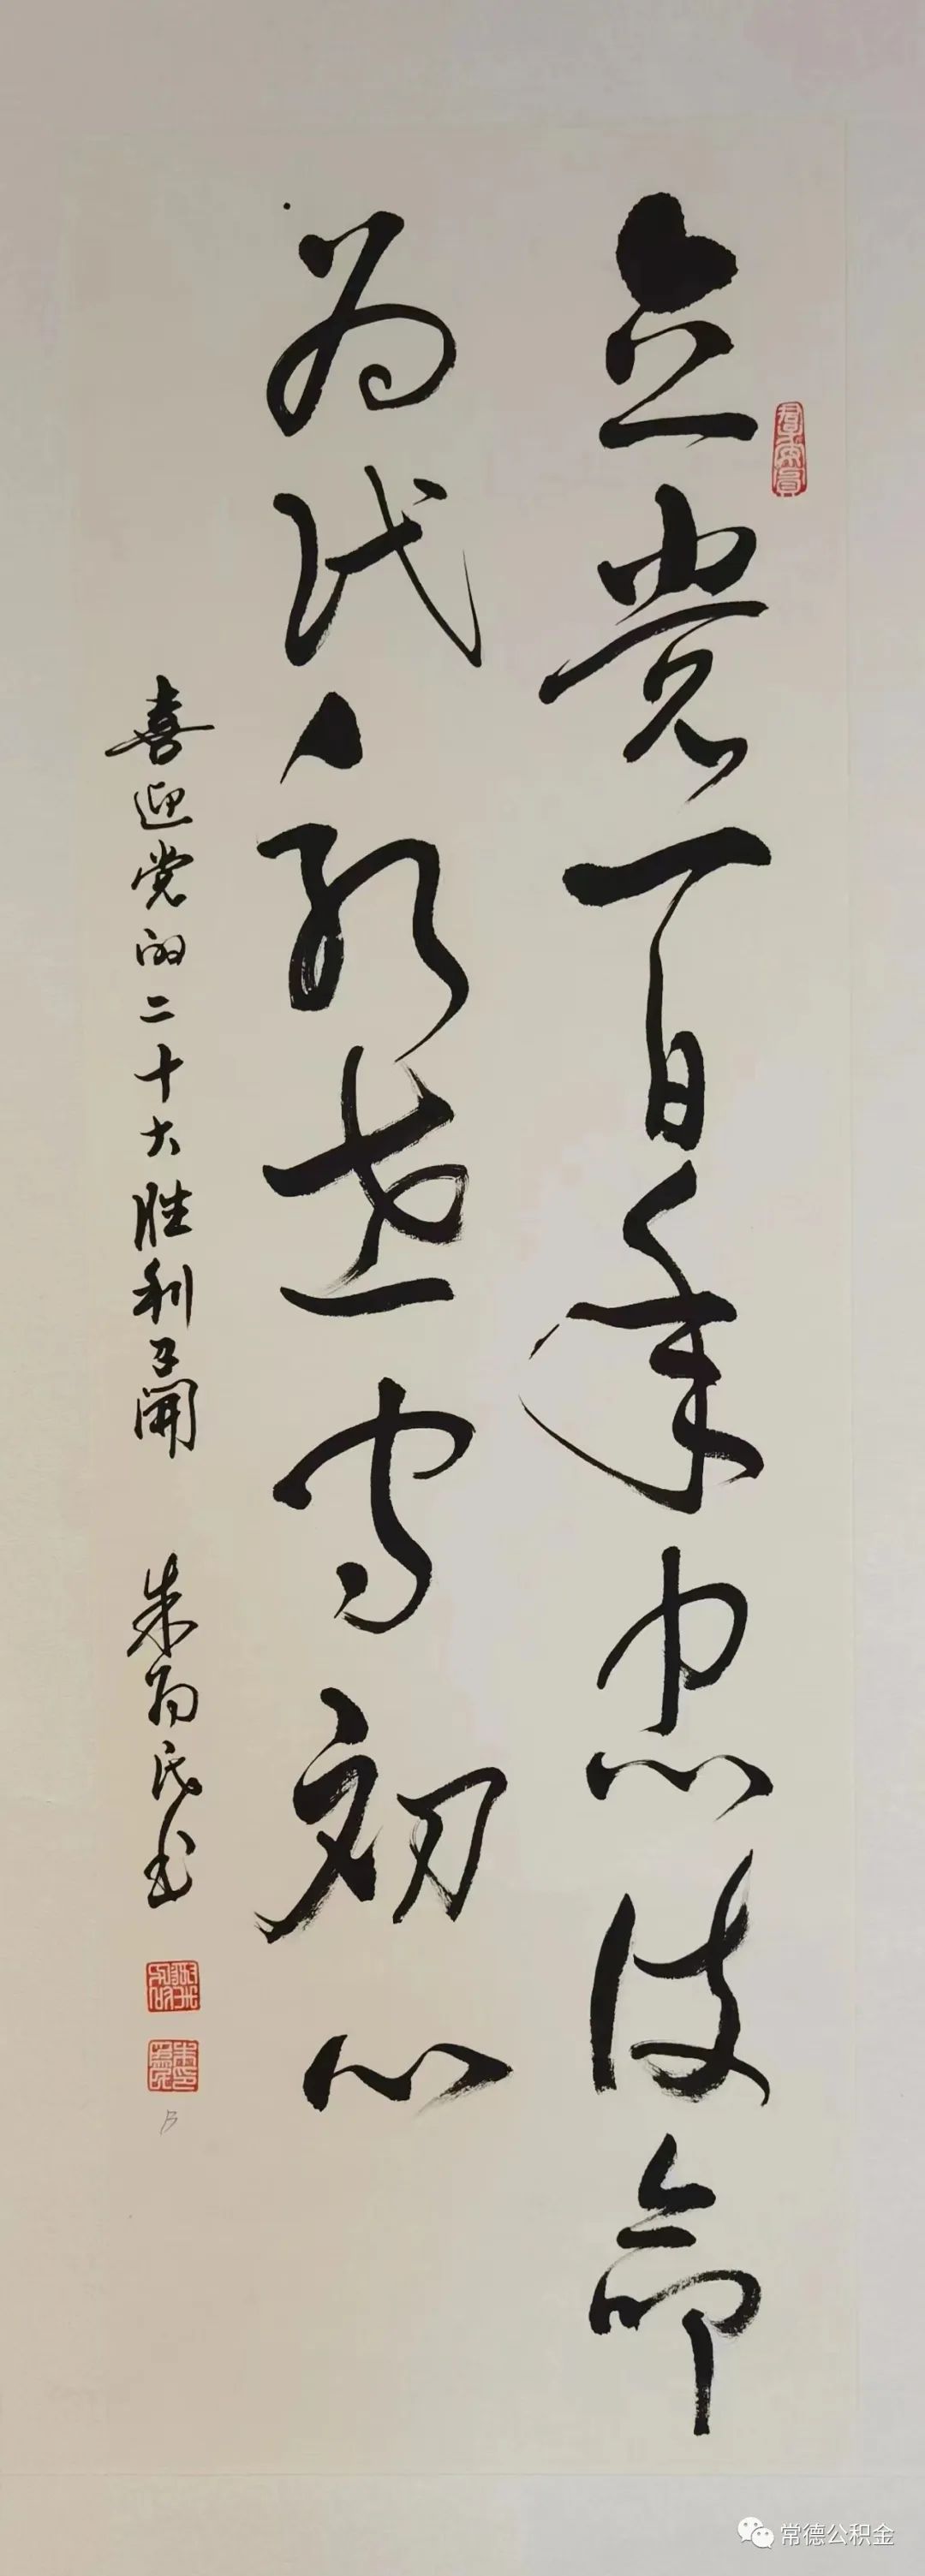 立党百年忠使命
为民永世守初心
喜迎党的二十大胜利召開 朱为民书
常德公积金